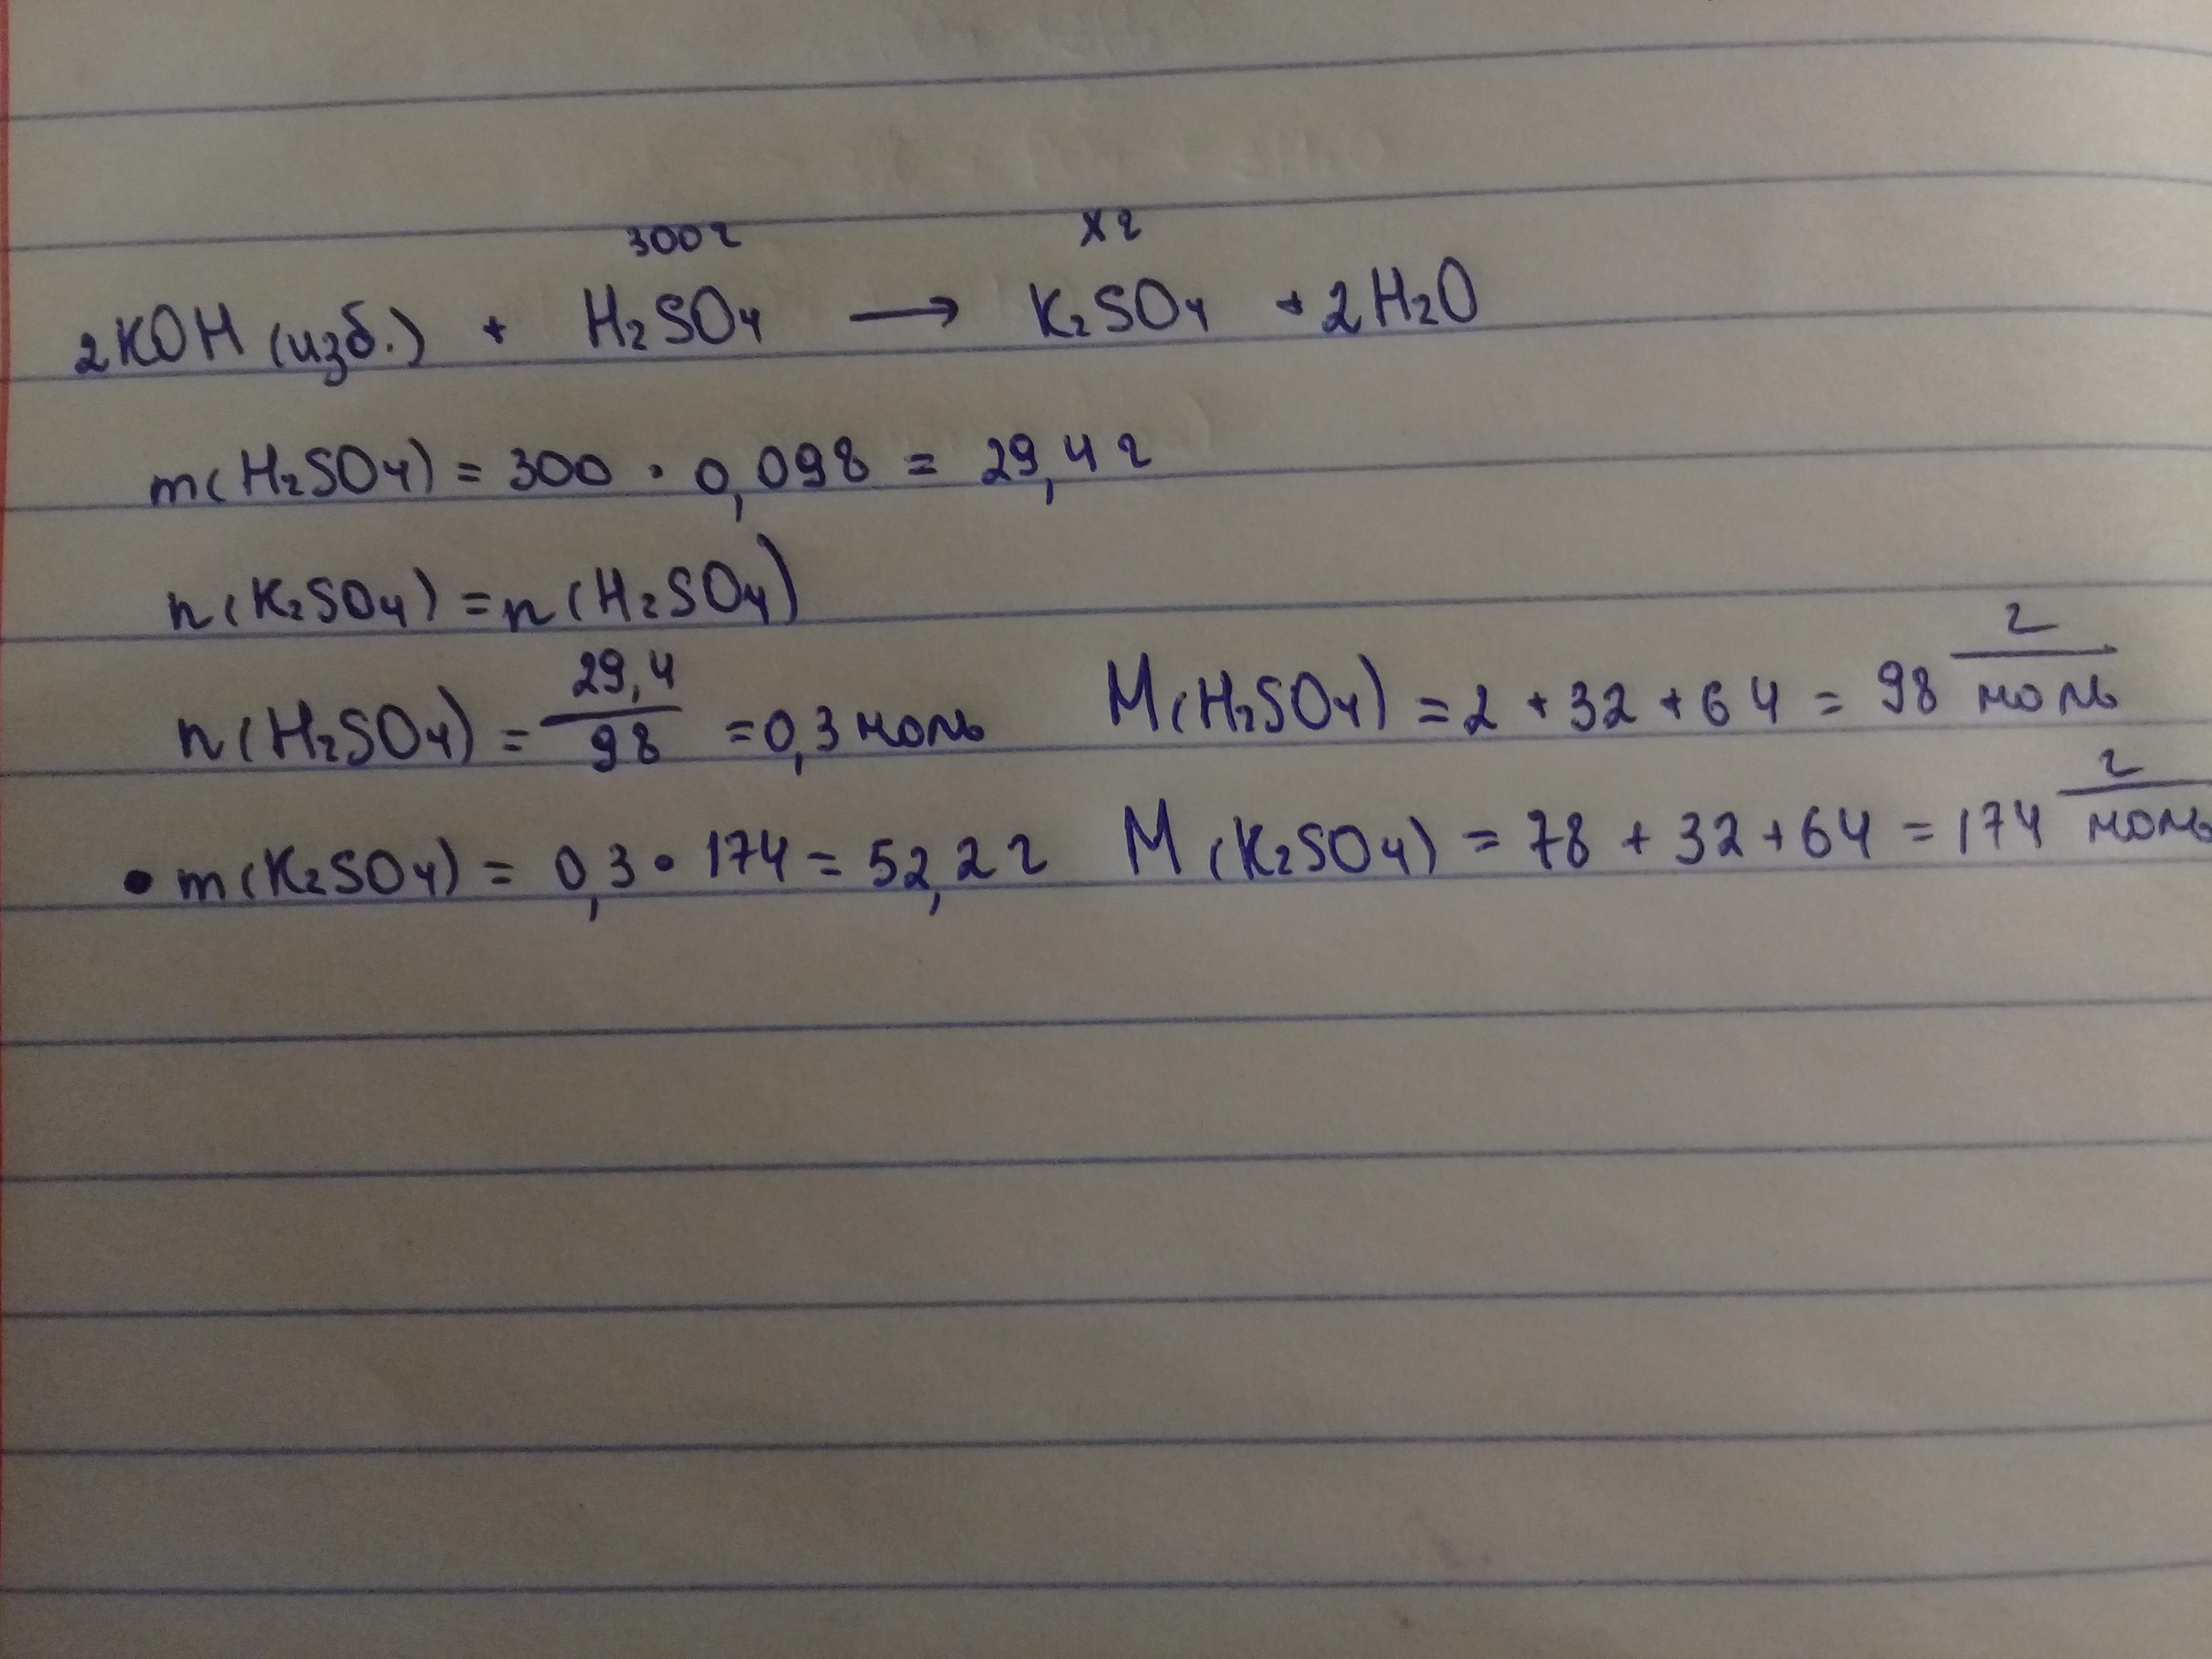 300 г х г
2KOH (изб.) + H₂SO₄ → K₂SO₄ + 2H₂O
m(H₂SO₄) = 300 · 0,098 = 29,4 г
n(K₂SO₄) = n(H₂SO₄)
n(H₂SO₄) = 29,4/98 = 0,3 моль M(H₂SO₄) = 2 + 32 + 64 = 98 г/моль
• m(K₂SO₄) = 0,3 · 174 = 52,2 г M(K₂SO₄) = 78 + 32 + 64 = 174 г/моль